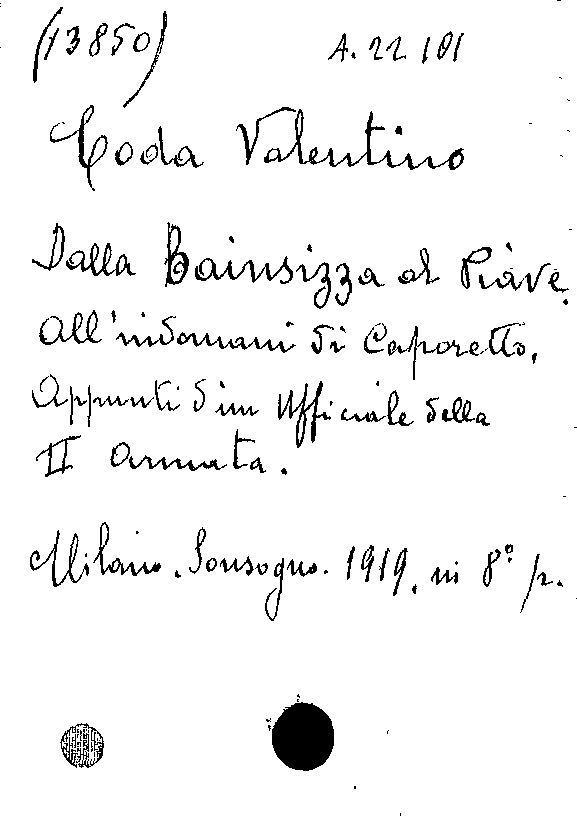 (13850) A. 22 101
Coda Valentino
Dalla Bainsizza al Piave.
All'indomani di Caporetto.
Appunti d'un Ufficiale della
II Armata.
Milano. Sonzogno. 1919. in 8° p.